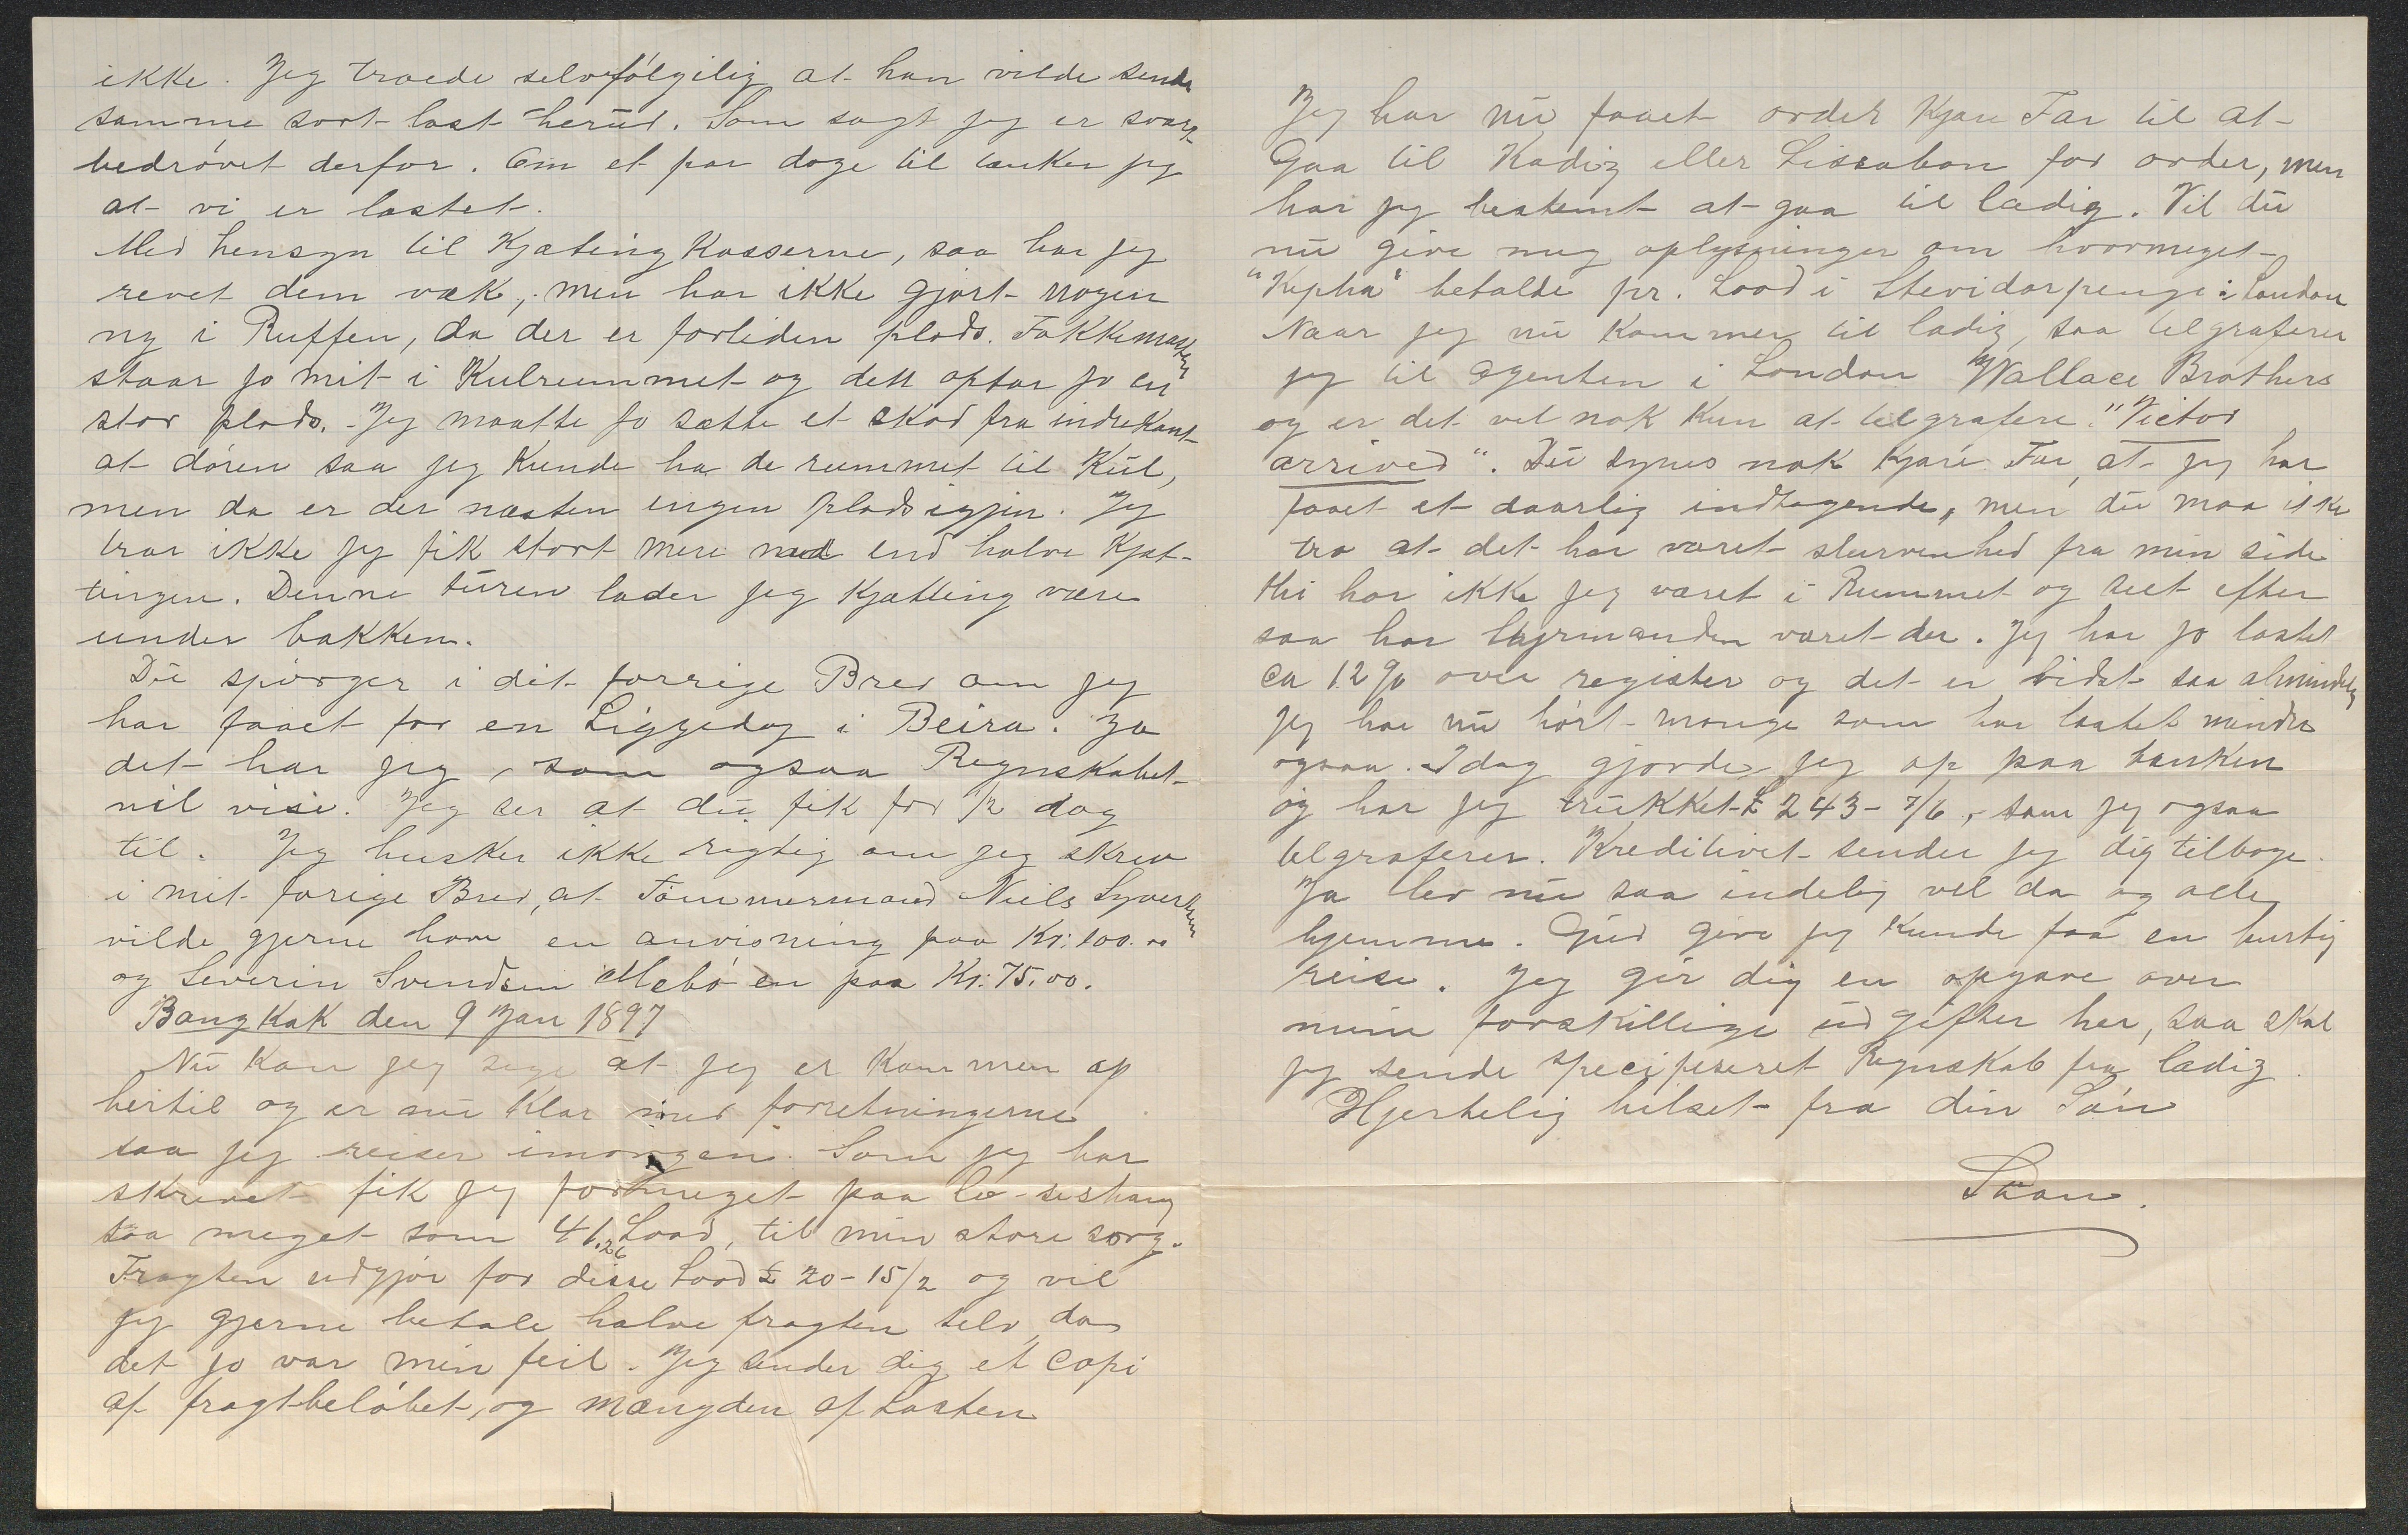 ikke. Jeg troede selvfölgilig at han vilde sende
samme sort last herud. Som sagt jeg er svært
bedrövet derfor. Om et par dage til tænker jeg
at vi er lastet.
Med hensyn til Kjæting Kasserne, saa har jeg
revet dem væk, men har ikke gjort nogen
ny i Ruffen, da der er forliden plads. Fokkemasten
staar jo mit i Kulrummet og dett optar jo en
stor plads. Jeg maatte jo sætte et skod fra indrekant
at dören saa jeg Kunde ha de rummet til Kul,
men da er der næsten ingen plads igjen. Jeg
tror ikke jeg fik stort mere ned end halve Kjæt-
tingen. Denne turen lader jeg Kjætting være
under bakken.
Du spörger i dit forrige Brev om jeg
har faaet for en Liggedag i Beira. Ja
det har jeg, som ogsaa Regnskabet
vil vise. Jeg ser at du fik for 1/2 dag
til. Jeg husker ikke rigtig om jeg skrev
i mit forige Brev, at Tömmermand Niels Syvertsen
vilde gjerne have en anvisning paa Kr: 100.00
og Severin Svendsen Mebö en paa Kr: 75.00.
BangKok den 9 Jan 1897
Nu Kan jeg sige at jeg er Kommen op
hertil og er nu Klar med forretningerne
saa jeg reiser imorgen. Som jeg har
skrevet fik jeg formeget paa
saa meget som 41.26 Load, til min store sorg.
Fragten udgjör for disse Load £ 20-15/2 og vil
jeg gjerne betale halve fragten selv da
det jo var min feil. Jeg sender dig et Copi
af fragtbelöbet, og mængden af Lasten
Jeg har nu faaet order Kjære Far til at
Gaa til Kadiz eller Lissabon for order, men
har jeg bestemt at gaa til Cadiz. Vil du
nu give mig oplysninger om hvormeget
"Kepha" betalde pr. Load i Stevidorpenge i London
Naar jeg nu Kommer til Cadiz, saa telgraferer
jeg til Agenten i London Wallace Brothers
og er det vel nok Kun at telgrafere. "Victor
arrived". Du synes nok Kjære Far, at jeg har
faaet et daarlig indtagende, men du maa ikke
tro at det har været slurvenhed fra min side
thi har ikke jeg været i Rummet og seet efter
saa har Styrmanden været der. Jeg har jo lastet
ca 12 % over register og det er vidst saa almindelig
jeg har nu hört mange som har lastet mindre
ogsaa. Idag gjorde jeg op paa banken
og har jeg trukket £ 243- 7/6, som jeg ogsaa
telgraferer. Kreditivet sender jeg dig tilbage.
Ja lev nu saa indelig vel da og alle
hjemme. Gud give jeg Kunde faa en hurtig
reise. Jeg gir dig en opgave over
mine forskillige udgifter her, saa skal
jeg sende specifiseret Regnskab fra Cadiz.
Hjertelig hilset fra din Sön